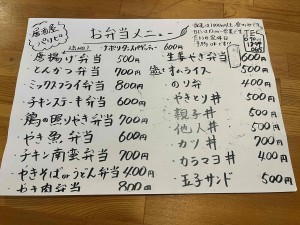 居酒屋
お弁当メニュー
唐揚げ弁当 500円
とんかつ弁当 700円
ミックスフライ弁当 800円
チキンステーキ弁当 600円
鶏の照りやき弁当 600円
やき魚弁当 600円
チキン南蛮弁当 700円
やきそばorうどん弁当 400円
やき肉弁当 800円
生姜やき弁当 600円
オムライス 500円
のり弁 400円
やきとり丼 500円
親子丼 500円
他人丼 500円
カツ丼 700円
カラマヨ丼 400円
玉子サンド 500円
TEL